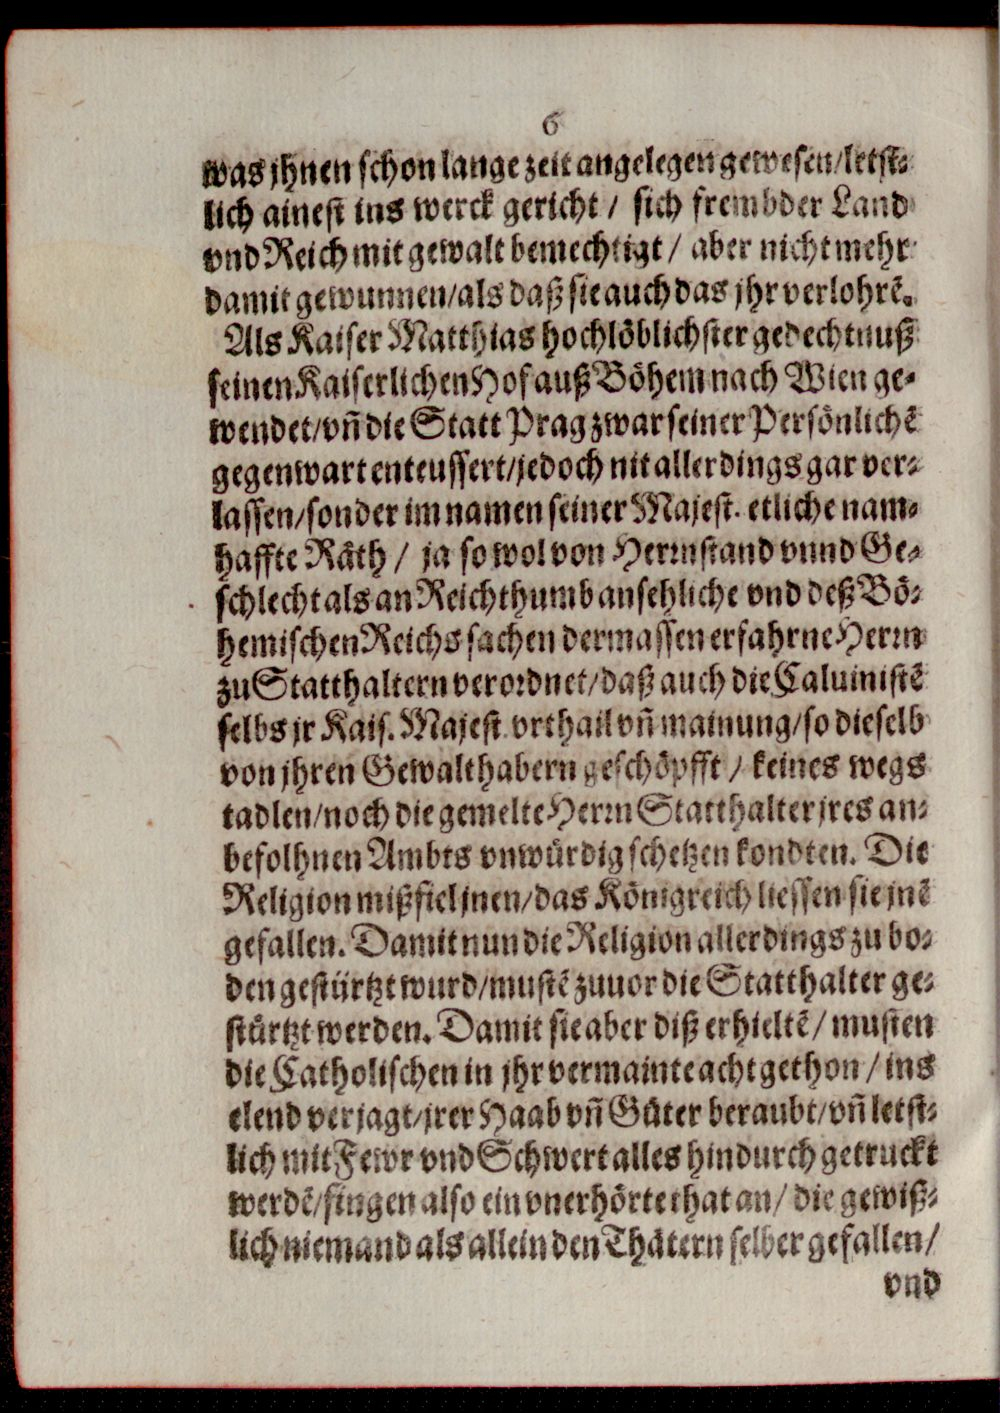 6
was jhnen schon lange zeit angelegen gewesen/letst-
lich ainest ins werck gericht / sich frembder Land
vnd Reich mit gewalt bemechtigt / aber nicht mehr
damit gewunnen/als daß sie auch das jhr verlohrē.
Als Kaiser Matthias hochlöblichster gedechtnuß
seinen Kaiserlichen Hof auß Böhem nach Wien ge-
wendet/vñ die Statt Prag zwar seiner Persönlichē
gegenwart enteussert/jedoch nit allerdings gar ver-
lassen/sonder im namen seiner Majest. etliche nam-
haffte Räth / ja so wol von Herrnstand vnnd Ge-
schlecht als an Reichthumb ansehliche vnd deß Bö-
hemischen Reichs sachen dermassen erfahrne Herrn
zu Statthaltern verordnet/daß auch die Caluinistē
selbs jr Kais. Majest. vrthail vñ mainung/so dieselb
von jhren Gewalthabern geschöpfft / keines wegs
tadlen/noch die gemelte Herrn Statthalter jres an-
befolhnen Ambts vnwürdig schetzen kondten. Die
Religion mißfiel jnen/das Königreich liessen sie jnē
gefallen. Damit nun die Religion allerdings zu bo-
den gestürtzt wurd/mustē zuuor die Statthalter ge-
stürtzt werden. Damit sie aber diß erhieltē / musten
die Catholischen in jhr vermainte acht gethon / ins
elend verjagt/jrer Haab vñ Güter beraubt/vñ letst-
lich mit Fewr vnd Schwert alles hindurch getruckt
werdē/fingen also ein vnerhörte that an/ die gewiß-
lich niemand als allein den Thätern selber gefallen/
vnd